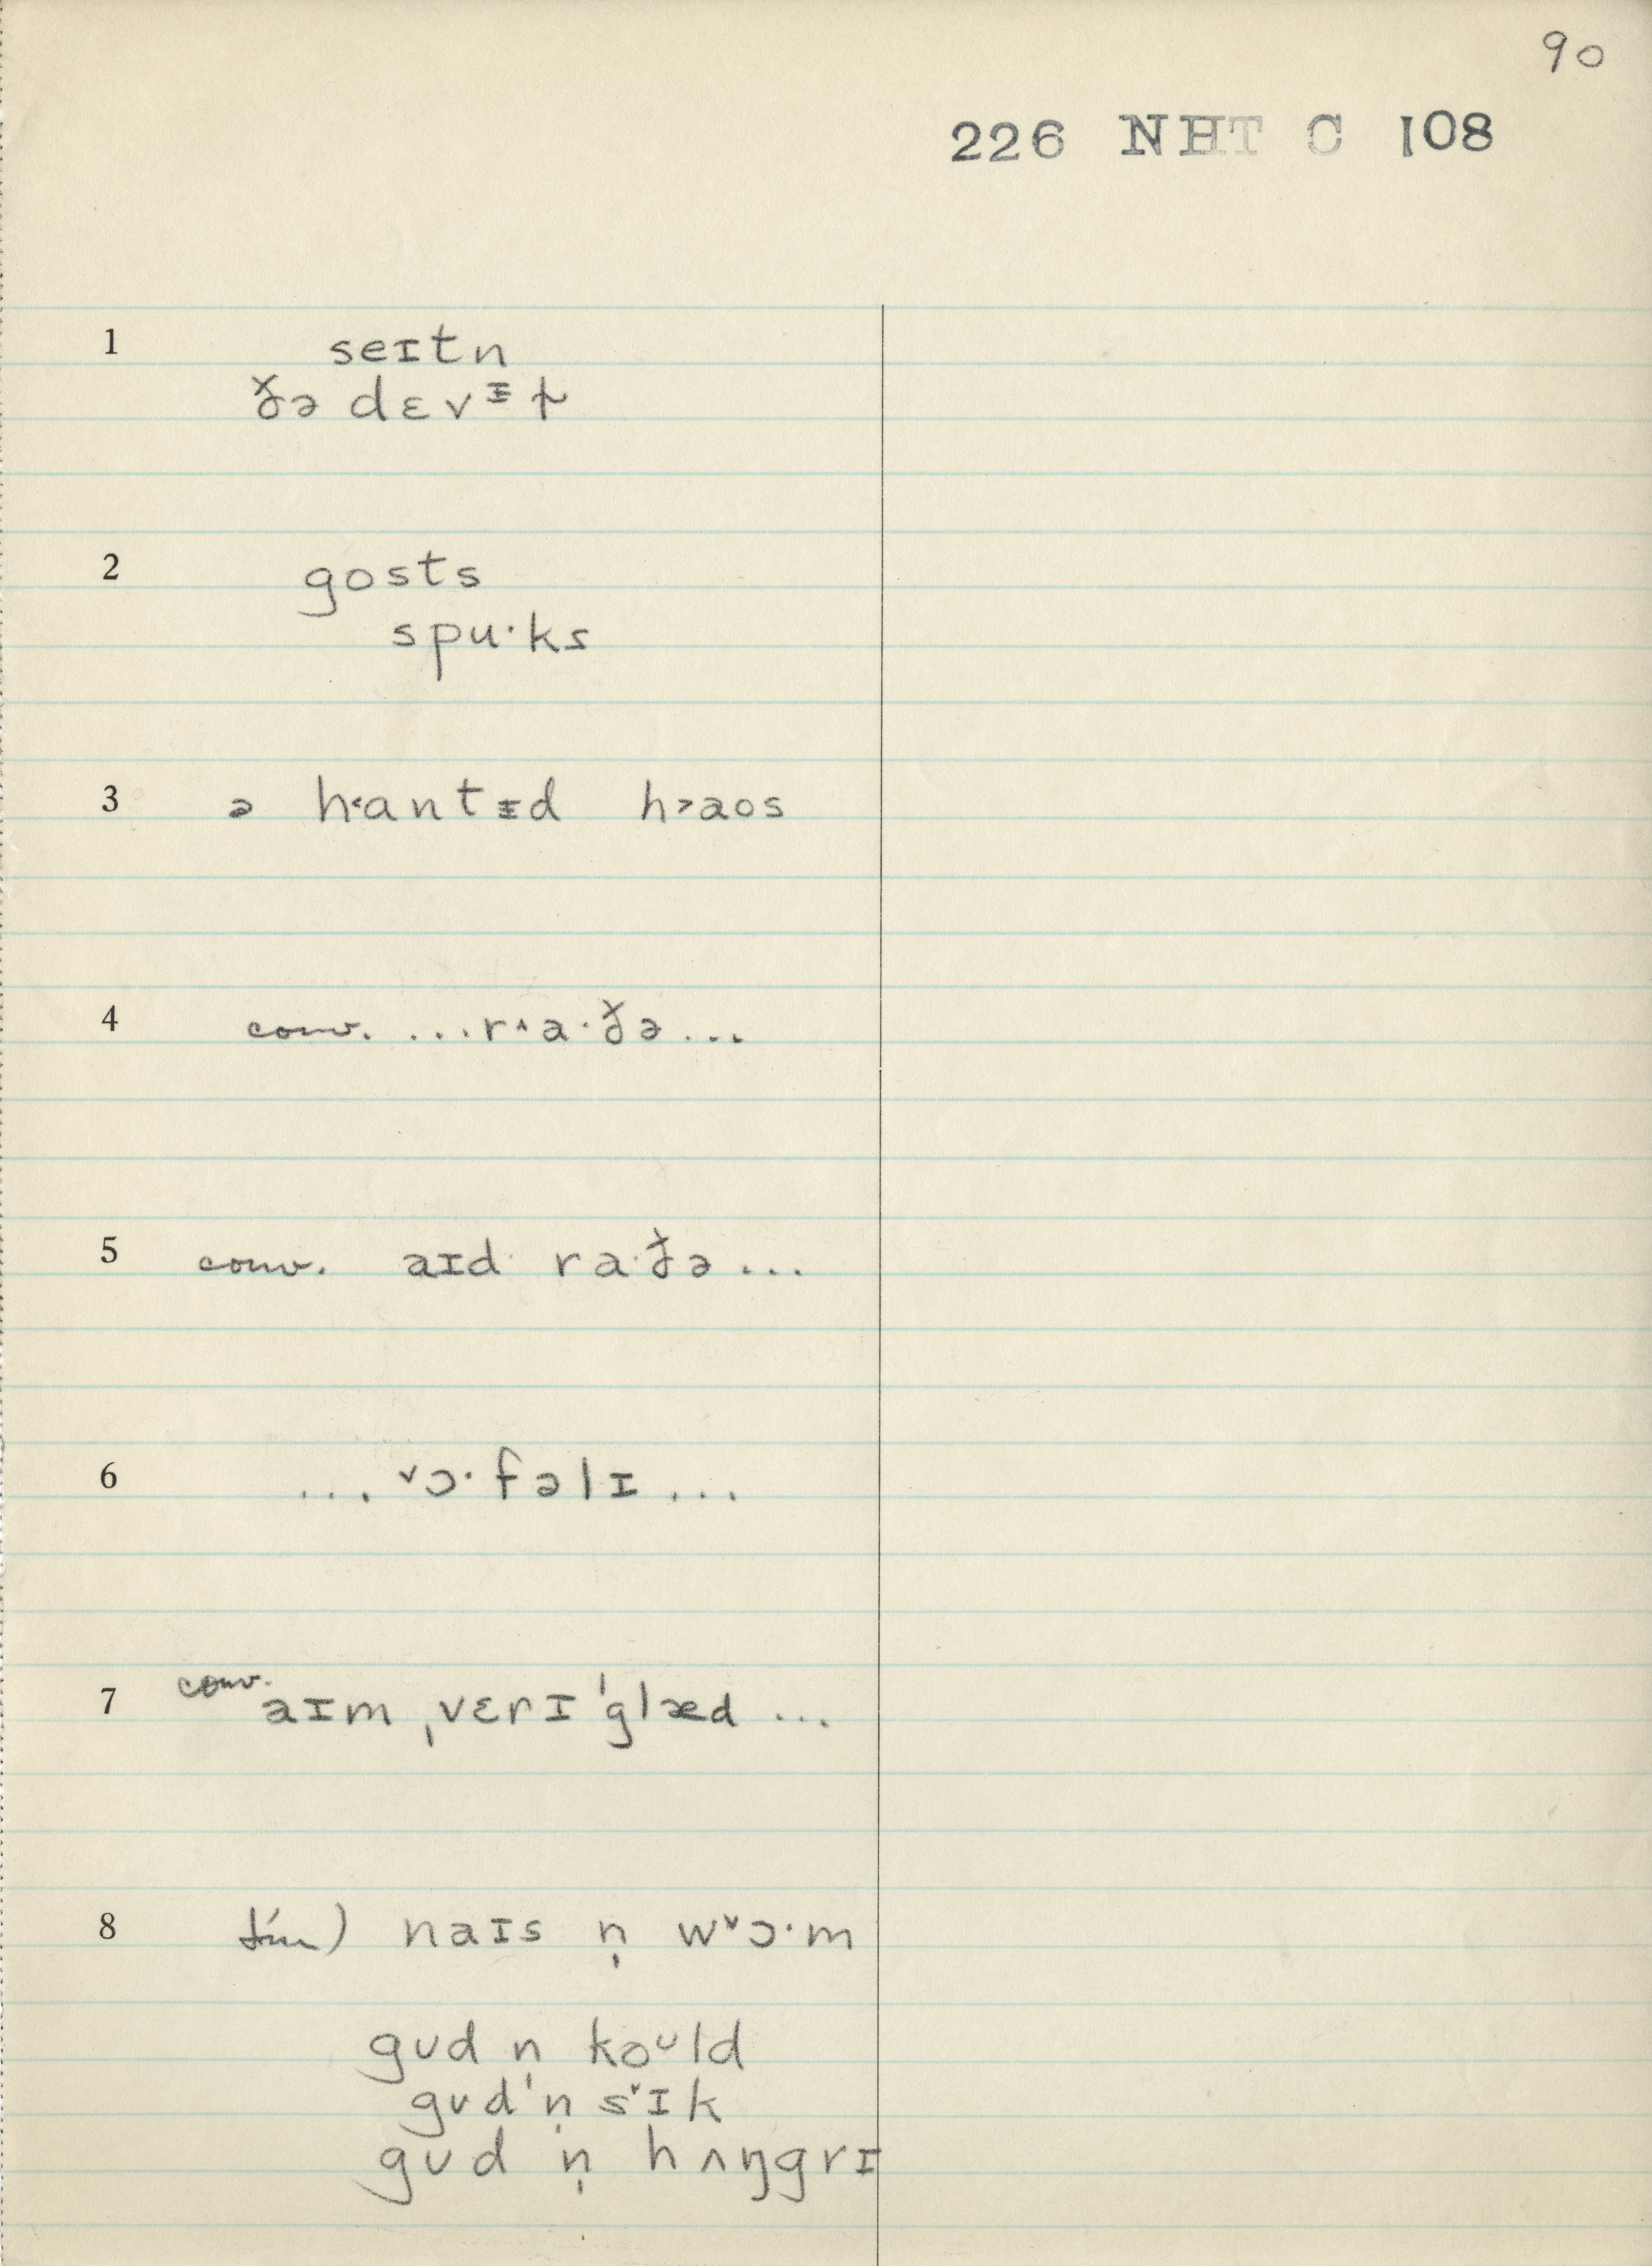 90
226 NHT C 108
1 seɪtn
ðə dɛvᵻɫ
2 gosts
spu·ks
3 ə h˂antᵻd h˃aʊs
4 conv. ...r˄a·ðə...
5 conv. aɪd ra·ðə...
6 ... ˅ɔ·fəlɪ ...
7 conv. aɪm ˌvɛrɪ ˈglæd ...
8 naɪs n̩ w˅ɔ·m
gʊd n̩ koᴜld
gʊd n̩ s˅ɪk
gʊd n̩ hʌŋgrɪ